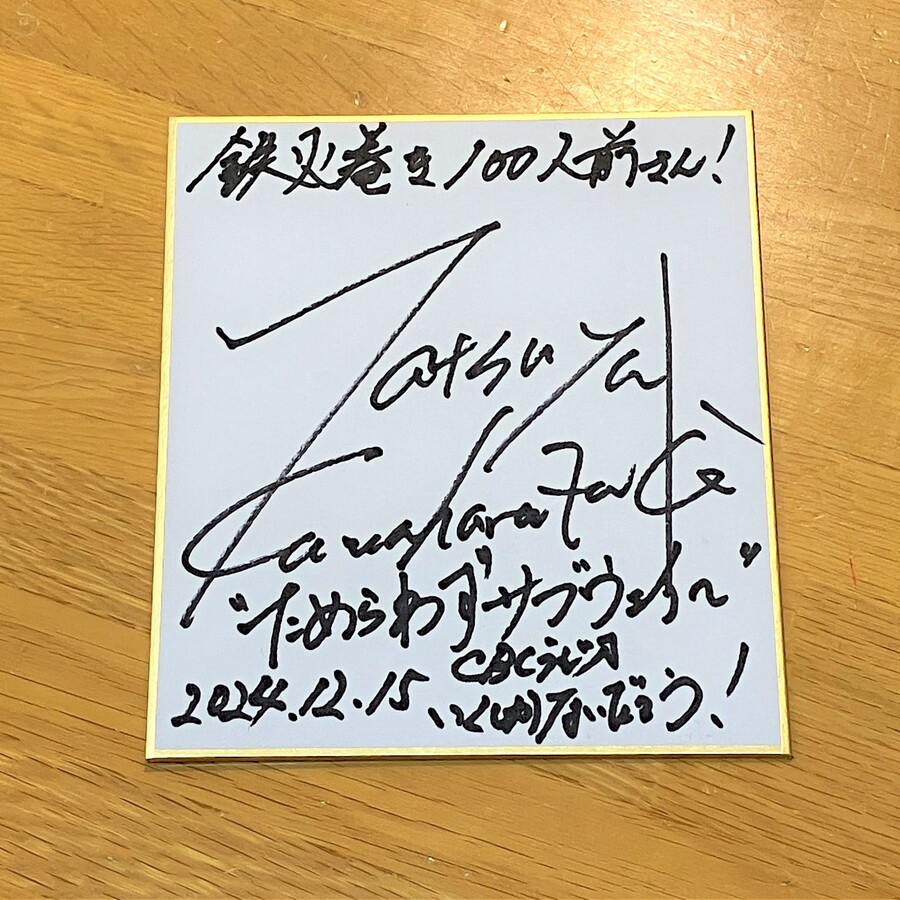 鉄火巻き100人前さん!
Tatsuya
KawaharaTake
"ためらわずサブウェイへ"
CBCラジオ
2024.12.15 いくしかないだろう!